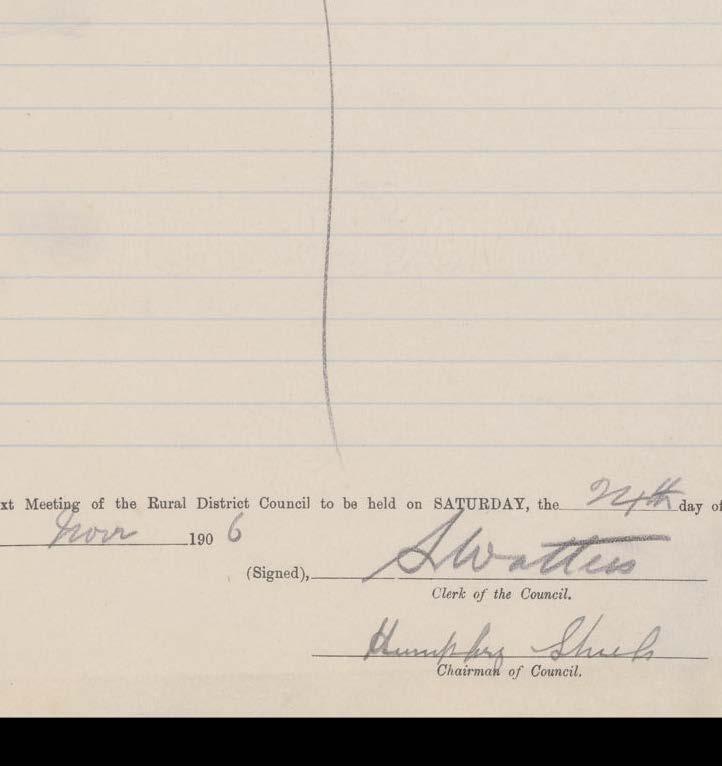 xt Meeting of the Rural District Council to be held on SATURDAY, the 24th day of
Novr 190 6
(Signed), S Watters
Clerk of the Council.
Humphry
Chairman of Council.